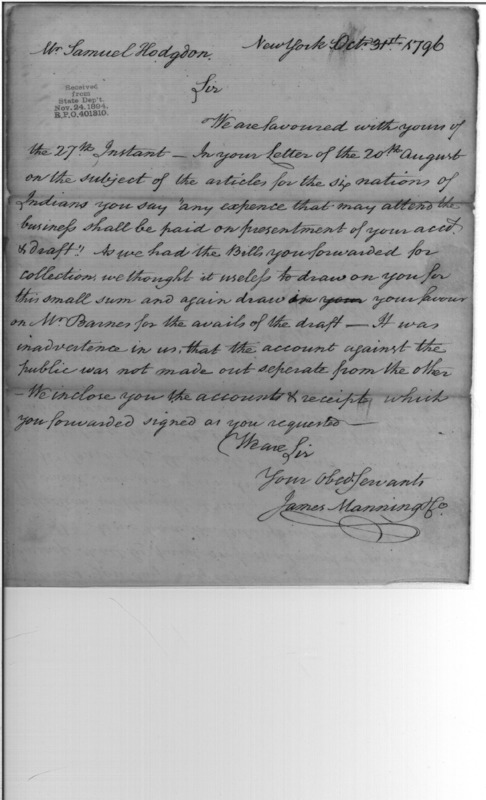 Mr Samuel Hodgdon. New York Oct. 31st 1796
Received
from
State Dep't.
Nov. 24. 1894.
R.P.O. 401310.
Sir
We are favoured with yours of
the 27th Instant — In your Letter of the 20th August
on the subject of the articles for the six nations of
Indians you say "any expence that may attend the
business shall be paid on presentment of your acct
& draft". As we had the Bills you forwarded for
collection, we thought it useless to draw on you for
this small sum and again draw in your favour
on Mr Barnes for the avails of the draft — It was
inadvertence in us, that the account against the
public was not made out seperate from the other
— We inclose you the accounts & receipts which
you forwarded signed as you requested —
We are Sir
Your obed. Servants
James Manning & Co.